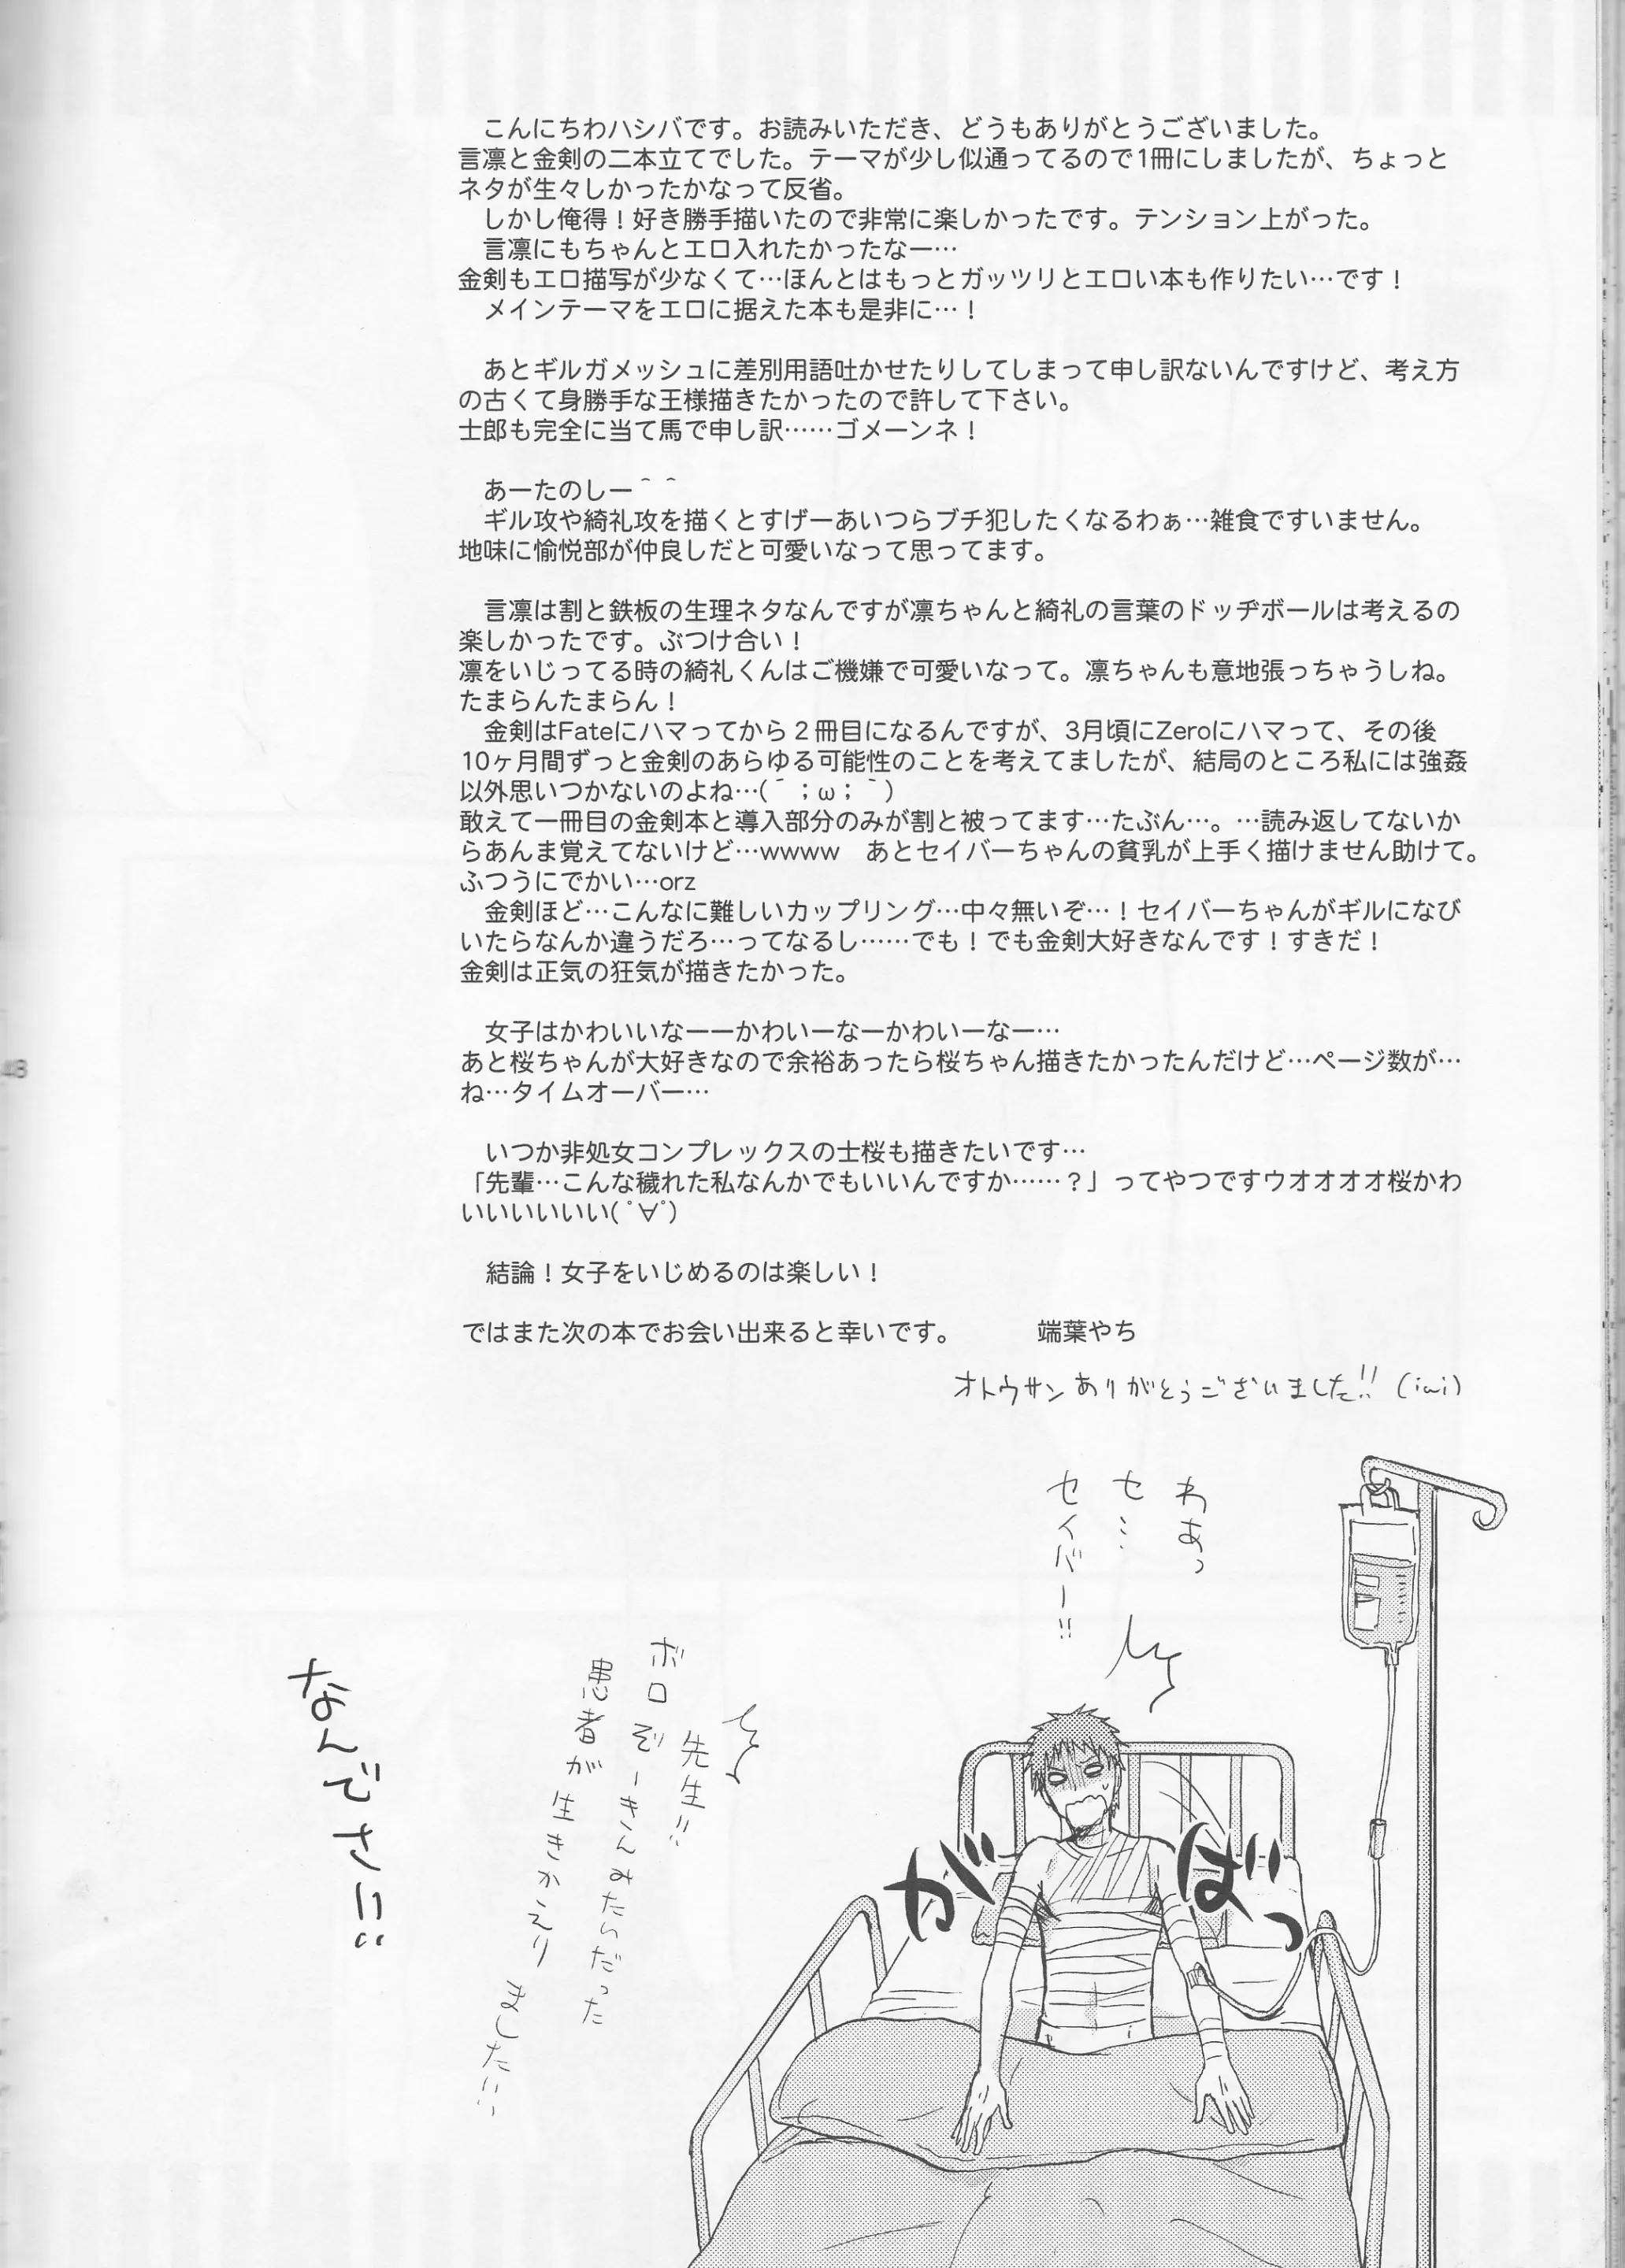 こんにちわハシバです。お読みいただき、どうもありがとうございました。
言凛と金剣の二本立てでした。テーマが少し似通ってるので1冊にしましたが、ちょっと
ネタが生々しかったかなって反省。
しかし俺得！好き勝手描いたので非常に楽しかったです。テンション上がった。
言凛にもちゃんとエロ入れたかったなー…
金剣もエロ描写が少なくて…ほんとはもっとガッツリとエロい本も作りたい…です！
メインテーマをエロに据えた本も是非に…！
あとギルガメッシュに差別用語吐かせたりしてしまって申し訳ないんですけど、考え方
の古くて身勝手な王様描きたかったので許して下さい。
士郎も完全に当て馬で申し訳……ゴメーンネ！
あーたのしー＾＾
ギル攻や綺礼攻を描くとすげーあいつらブチ犯したくなるわぁ…雑食ですいません。
地味に愉悦部が仲良しだと可愛いなって思ってます。
言凛は割と鉄板の生理ネタなんですが凛ちゃんと綺礼の言葉のドッヂボールは考えるの
楽しかったです。ぶつけ合い！
凛をいじってる時の綺礼くんはご機嫌で可愛いなって。凛ちゃんも意地張っちゃうしね。
たまらんたまらん！
金剣はFateにハマってから２冊目になるんですが、3月頃にZeroにハマって、その後
10ヶ月間ずっと金剣のあらゆる可能性のことを考えてましたが、結局のところ私には強姦
以外思いつかないのよね…(´；ω；｀)
敢えて一冊目の金剣本と導入部分のみが割と被ってます…たぶん…。…読み返してないか
らあんま覚えてないけど…wwww　あとセイバーちゃんの貧乳が上手く描けません助けて。
ふつうにでかい…orz
金剣ほど…こんなに難しいカップリング…中々無いぞ…！セイバーちゃんがギルになび
いたらなんか違うだろ…ってなるし……でも！でも金剣大好きなんです！すきだ！
金剣は正気の狂気が描きたかった。
女子はかわいいなーーかわいーなーかわいーなー…
あと桜ちゃんが大好きなので余裕あったら桜ちゃん描きたかったんだけど…ページ数が…
ね…タイムオーバー…
いつか非処女コンプレックスの士桜も描きたいです…
「先輩…こんな穢れた私なんかでもいいんですか……？」ってやつですウオオオオ桜かわ
いいいいいい(ﾟ∀ﾟ)
結論！女子をいじめるのは楽しい！
ではまた次の本でお会い出来ると幸いです。　　　端葉やち
オトウサンありがとうございました!! (iwi)
48
わあっ
セ…
セイバー!!
がばっ
先生!!
ボロぞーきんみたいだった
患者が生きかえり
ました!!!
なんでさ!!